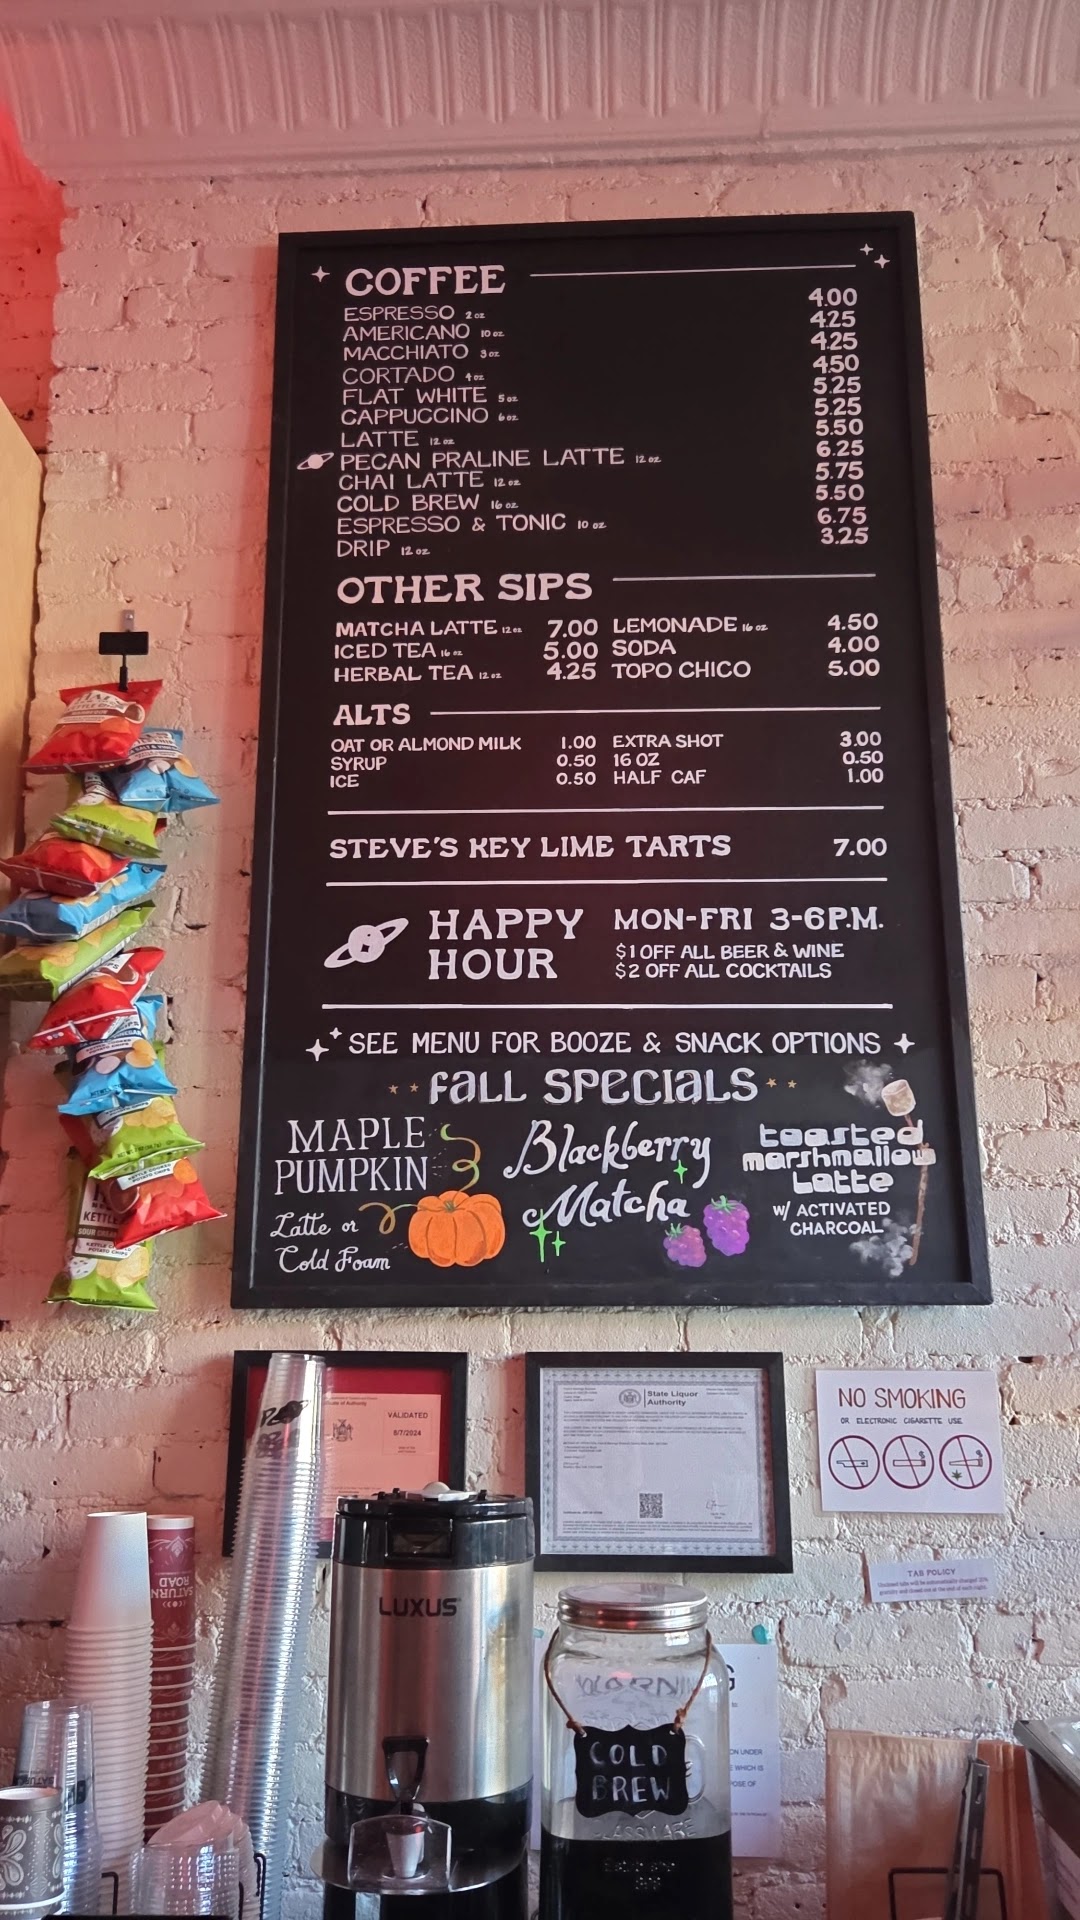 COFFEE
ESPRESSO 2 oz 4.00
AMERICANO 10 oz 4.25
MACCHIATO 3 oz 4.25
CORTADO 4 oz 4.50
FLAT WHITE 5 oz 5.25
CAPPUCCINO 6 oz 5.25
LATTE 12 oz 5.50
PECAN PRALINE LATTE 12 oz 6.25
CHAI LATTE 12 oz 5.75
COLD BREW 16 oz 5.50
ESPRESSO & TONIC 10 oz 6.75
DRIP 12 oz 3.25
OTHER SIPS
MATCHA LATTE 12 oz 7.00 LEMONADE 16 oz 4.50
ICED TEA 16 oz 5.00 SODA 4.00
HERBAL TEA 12 oz 4.25 TOPO CHICO 5.00
ALTS
OAT OR ALMOND MILK 1.00 EXTRA SHOT 3.00
SYRUP 0.50 16 OZ 0.50
ICE 0.50 HALF CAF 1.00
STEVE'S KEY LIME TARTS 7.00
HAPPY HOUR
MON-FRI 3-6P.M.
$1 OFF ALL BEER & WINE
$2 OFF ALL COCKTAILS
SEE MENU FOR BOOZE & SNACK OPTIONS
FALL SPECIALS
MAPLE
PUMPKIN
Latte or
Cold Foam
Blackberry
Matcha
toasted
marshmallow
Latte
W/ ACTIVATED
CHARCOAL
VALIDATED
8/7/2024
State Liquor
Authority
NO SMOKING
OR ELECTRONIC CIGARETTE USE
TAB POLICY
SATURN
ROAD
LUXUS
COLD
BREW